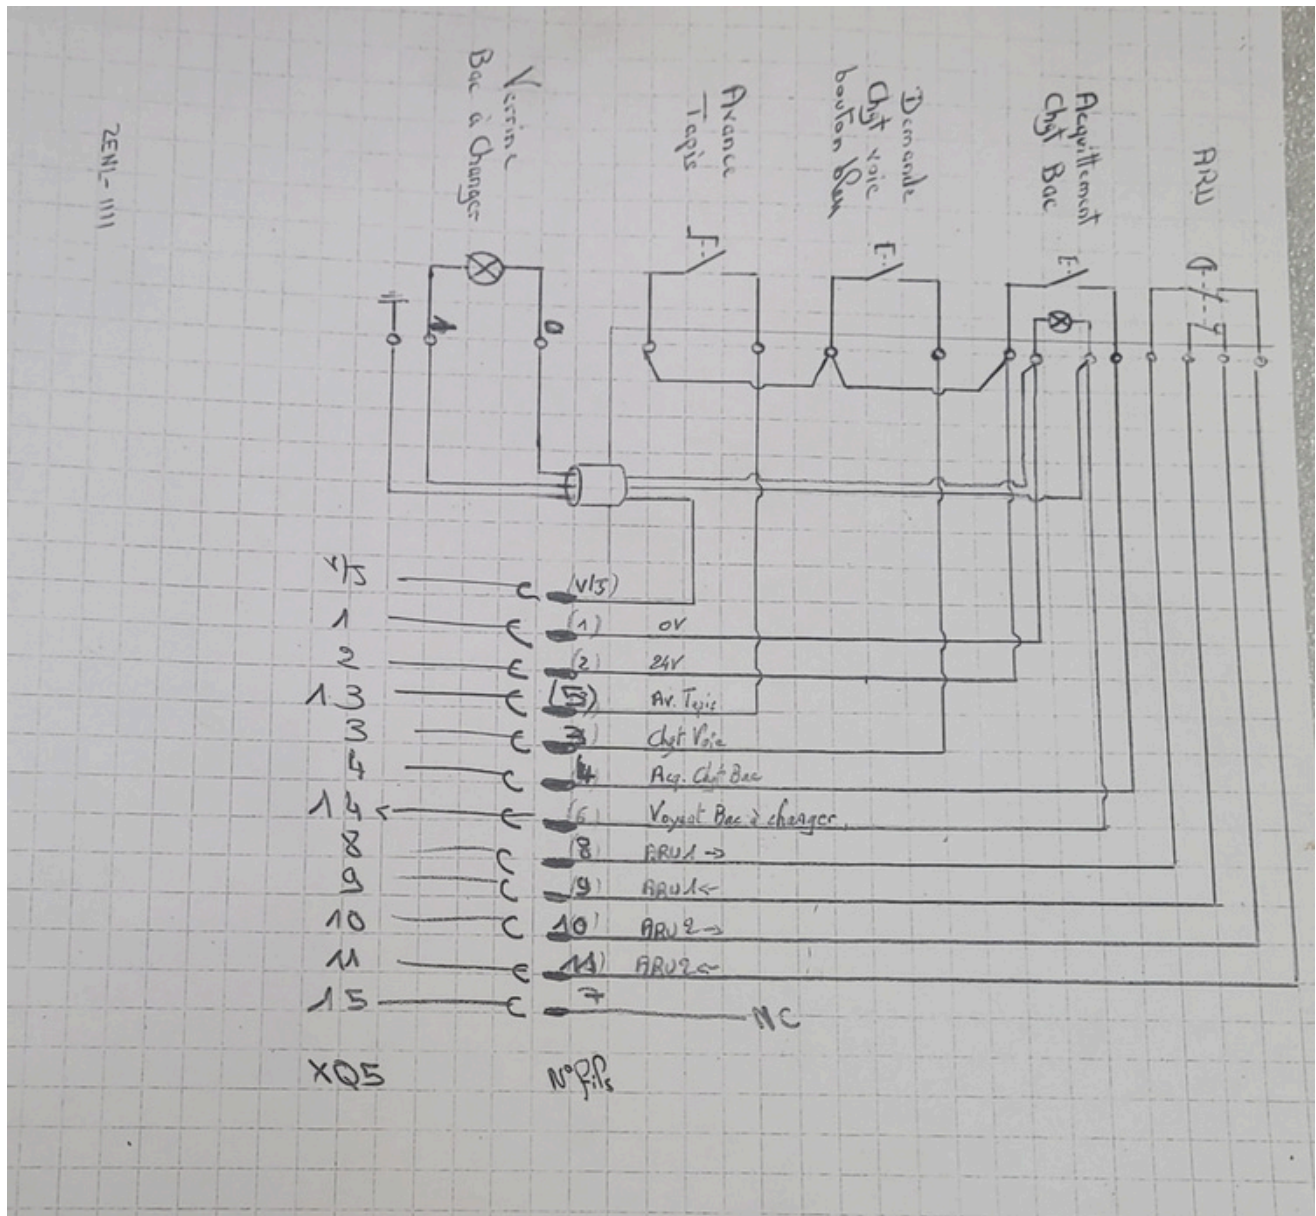 Verrine
Bac à Changer
Avance
Tapis
Demande
Chgt voie
bouton bleu
Acquittement
Chgt Bac
ARU
ZENL-1111
1
0
V/J (V/J)
1 (1) 0V
2 (2) 24V
13 (5) Av. Tapis
3 3) Chgt Voie
4 4 Acq. Chgt Bac
14 (6 Voyant Bac à changer
8 (8) ARU1→
9 (9) ARU1←
10 10) ARU2→
11 11) ARU2←
15 7 NC
XQ5 N° fils